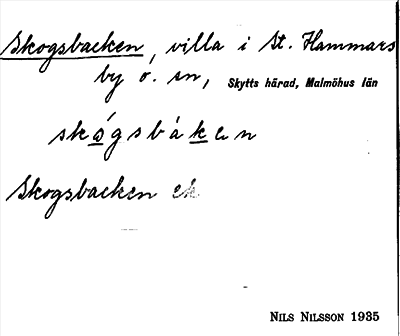 Skogsbacken, villa i St. Hammars
by o. sn, Skytts härad, Malmöhus län
skógsbàken
Skogsbacken ek
NILS NILSSON 1935